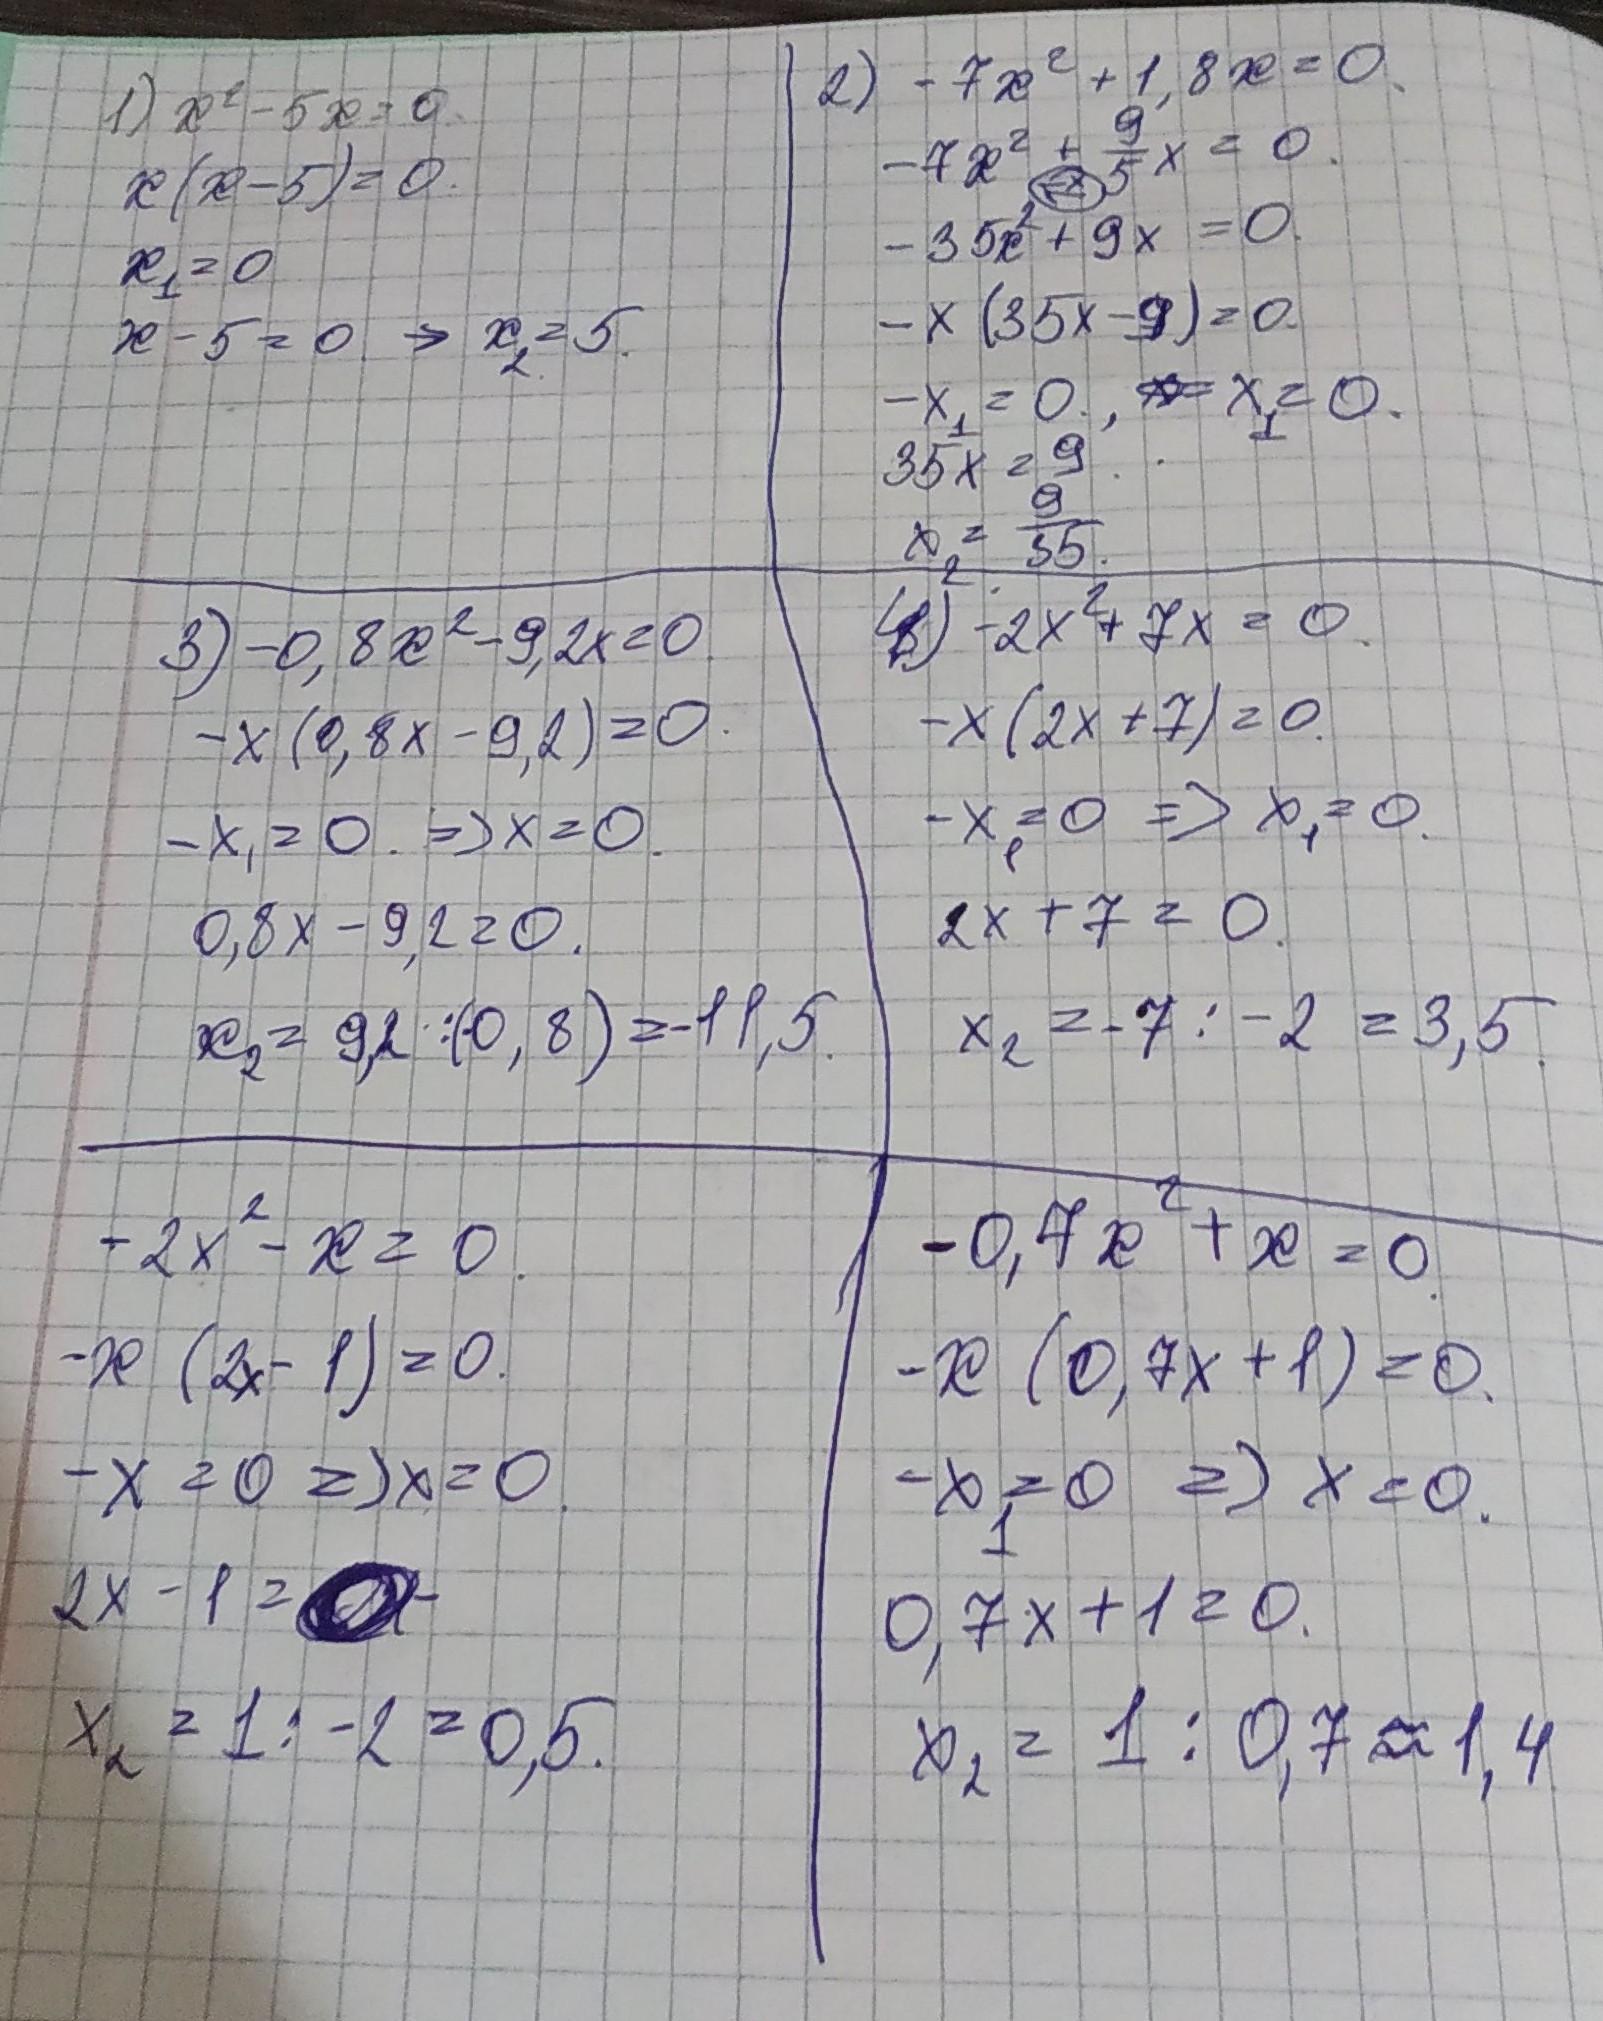 1) x² - 5x = 0.
x(x - 5) = 0.
x₁ = 0
x - 5 = 0 → x₂ = 5.
2) -7x² + 1,8x = 0.
-7x² + 9/5 x = 0.
-35x² + 9x = 0.
-x (35x - 9) = 0.
-x₁ = 0., x₁ = 0.
35x = 9.
x₂ = 9/35.
3) -0,8x² - 9,2x = 0.
-x (0,8x - 9,2) = 0.
-x₁ = 0. => x = 0.
0,8x - 9,2 = 0.
x₂ = 9,2 : (0,8) = -11,5.
4) -2x² + 7x = 0.
-x (2x + 7) = 0.
-x₁ = 0 => x₁ = 0.
2x + 7 = 0.
x₂ = -7 : -2 = 3,5.
-2x² - x = 0.
-x (2x - 1) = 0.
-x = 0 => x = 0.
2x - 1 =
x₂ = 1 : -2 = 0,5.
-0,7x² + x = 0.
-x (0,7x + 1) = 0.
-x₁ = 0 => x = 0.
0,7x + 1 = 0.
x₂ = 1 : 0,7 ≈ 1,4